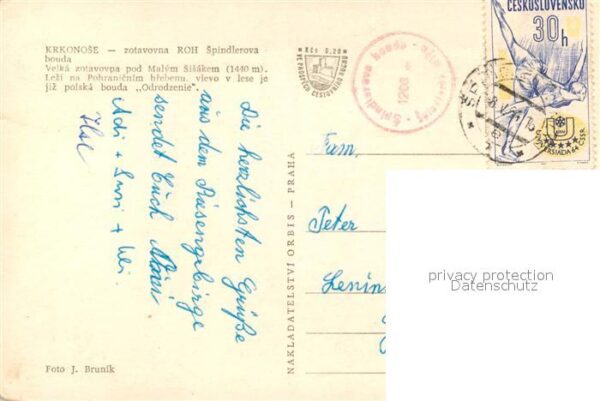 KRKONOŠE — zotavovna ROH Špindlerova
bouda
Velká zotavovna pod Malým Šišákem (1440 m).
Leží na Pohraničním hřebenu, vlevo v lese je
již polská bouda „Odrodzenie".
Die herzlichsten Grüße
aus dem Riesengebirge
sendet Euch
Adi +
Foto J. Bruník
NAKLADATELSTVÍ ORBIS — PRAHA
Kčs 0,20
VE PROSPĚCH CESTOVNÍHO RUCHU
Špindlerova bouda
1208
ČESKOSLOVENSKO
30h
UNIVERSIADA 64 ČSSR
Fam.
Peter
Lenin
privacy protection
Datenschutz